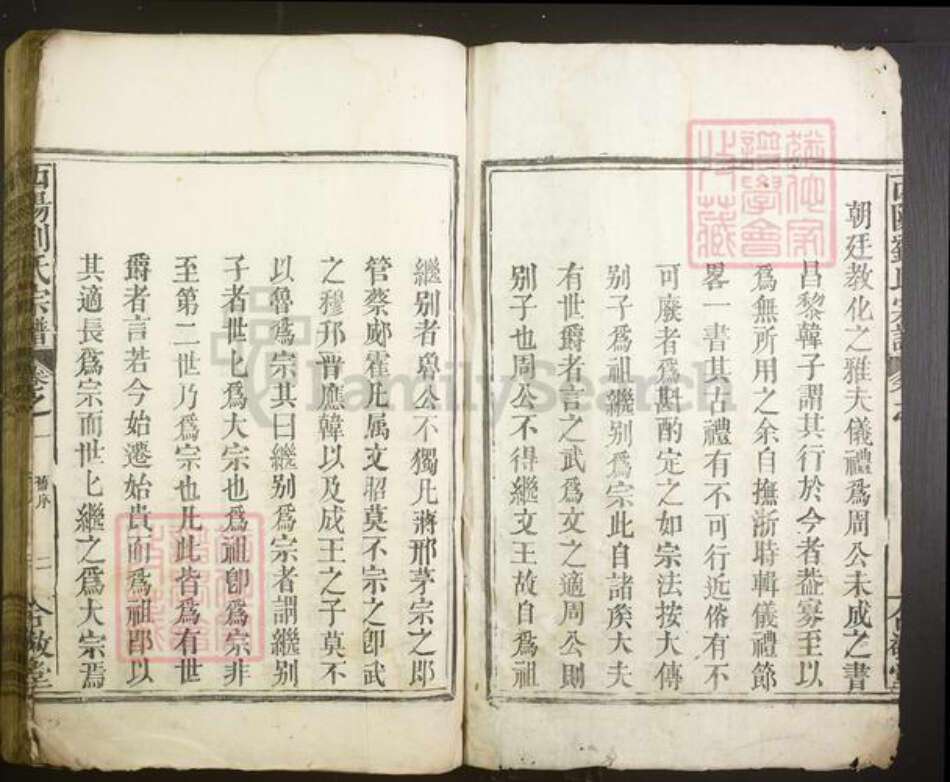 朝廷教化之雅夫儀禮爲周公未成之書
昌黎韓子謂其行於今者葢寡至以
爲無所用之余自撫浙時輯儀禮節
畧一書其古禮有不可行近俗有不
可廢者爲斟酌定之如宗法按大傳
别子爲祖繼别爲宗此自諸侯大夫
有世爵者言之武爲文之適周公則
别子也周公不得繼文王故自爲祖
繼别者魯公不獨凡蔣邢茅宗之即
管蔡郕霍凡属文昭莫不宗之卽武
之穆邘晋應韓以及成王之子莫不
以魯爲宗其曰繼别爲宗者謂繼别
子者世匕爲大宗也爲祖卽爲宗非
至第二世乃爲宗也凡此皆爲有世
爵者言若今始遷始貴而爲祖卽以
其適長爲宗而世匕繼之爲大宗焉
西陽劉氏宗譜
卷之一
舊序
二
合敬堂
FamilySearch